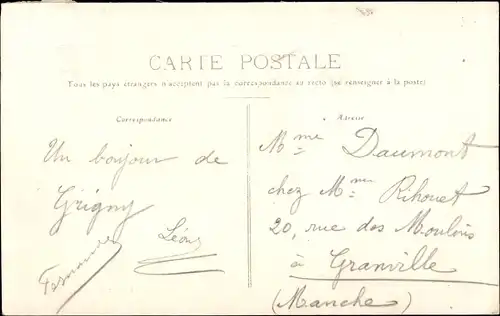 CARTE POSTALE
Tous les pays étrangers n'acceptent pas la correspondance au recto (se renseigner à la poste)
Correspondance
Adresse
Un bonjour de
Grigny
Léon
Fernand
Mme Daumont
chez Mme Rihouet
20, rue des Moulins
à Granville
(Manche)